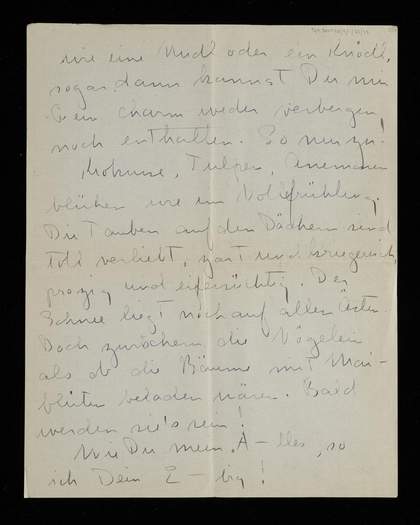 wie eine Nudl oder ein Knödl,
sogar dann kannst Du mir
Dein charm weder verbergen,
noch enthalten. So nur zu!
Krokusse, Tulpen, Anemonen
blühen wie im Vollfrühling.
Die Tauben auf den Dächern sind
toll verliebt, zart und kriegerisch,
protzig und eifersüchtig. Der
Schnee liegt noch auf allen Ästen.
Doch zwitschern die Vögelein
als ob die Bäume mit Mai-
blüten beladen wären. Bald
werden sie's sein!
Wie Du mein A-lles, so
ich Dein E-wig!